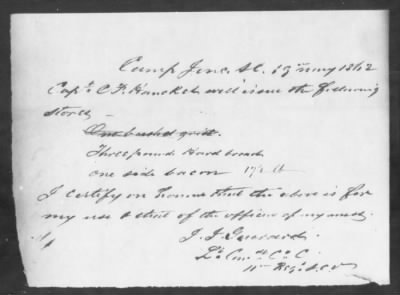 Camp Jones 19th May 1862
Capt C. F. Hanckel will issue the following
stores
One bushel grist.
Three pounds Hard bread
one side bacon 17½ lb
I certify on honor that the above is for
my use & that of the officers of my mess.
J. J.
Lt Comdg Co. C.
11th Regt S.C.V